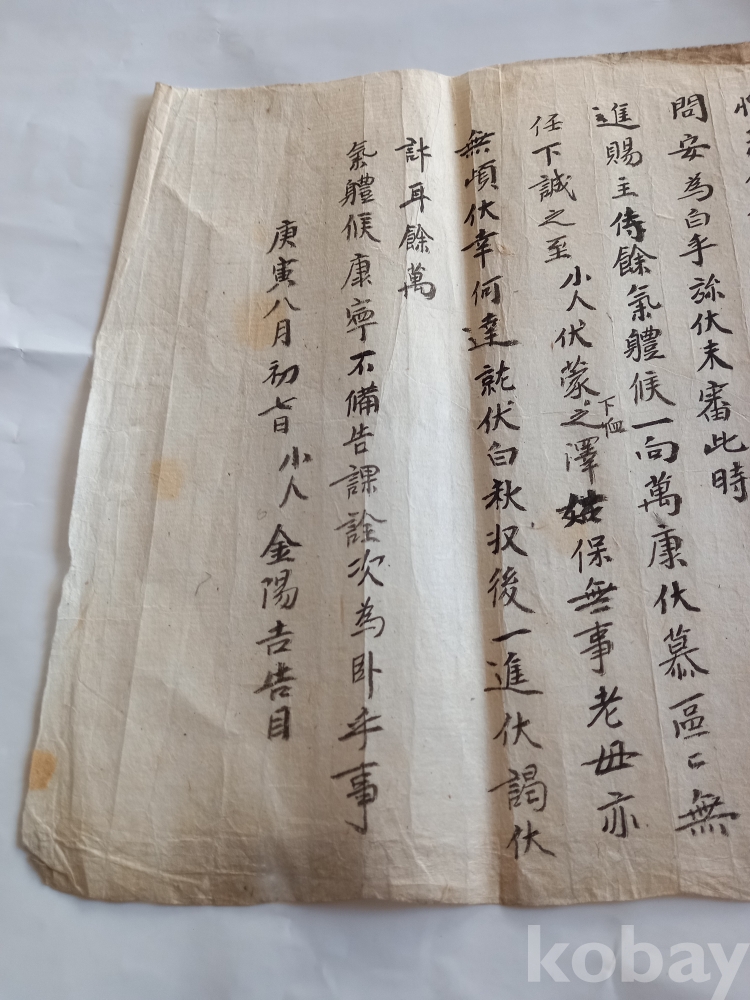 問安為白乎旀伏未審此時
進賜主侍餘氣體候一向萬康伏慕區〻無
任下誠之至小人伏蒙下恤之澤姑保無事老母亦
無頉伏幸何達就伏白秋收後一進伏謁伏
計耳餘萬
氣體候康寧不備告課詮次為卧乎事
庚寅八月初七日小人金陽吉告目
kobay